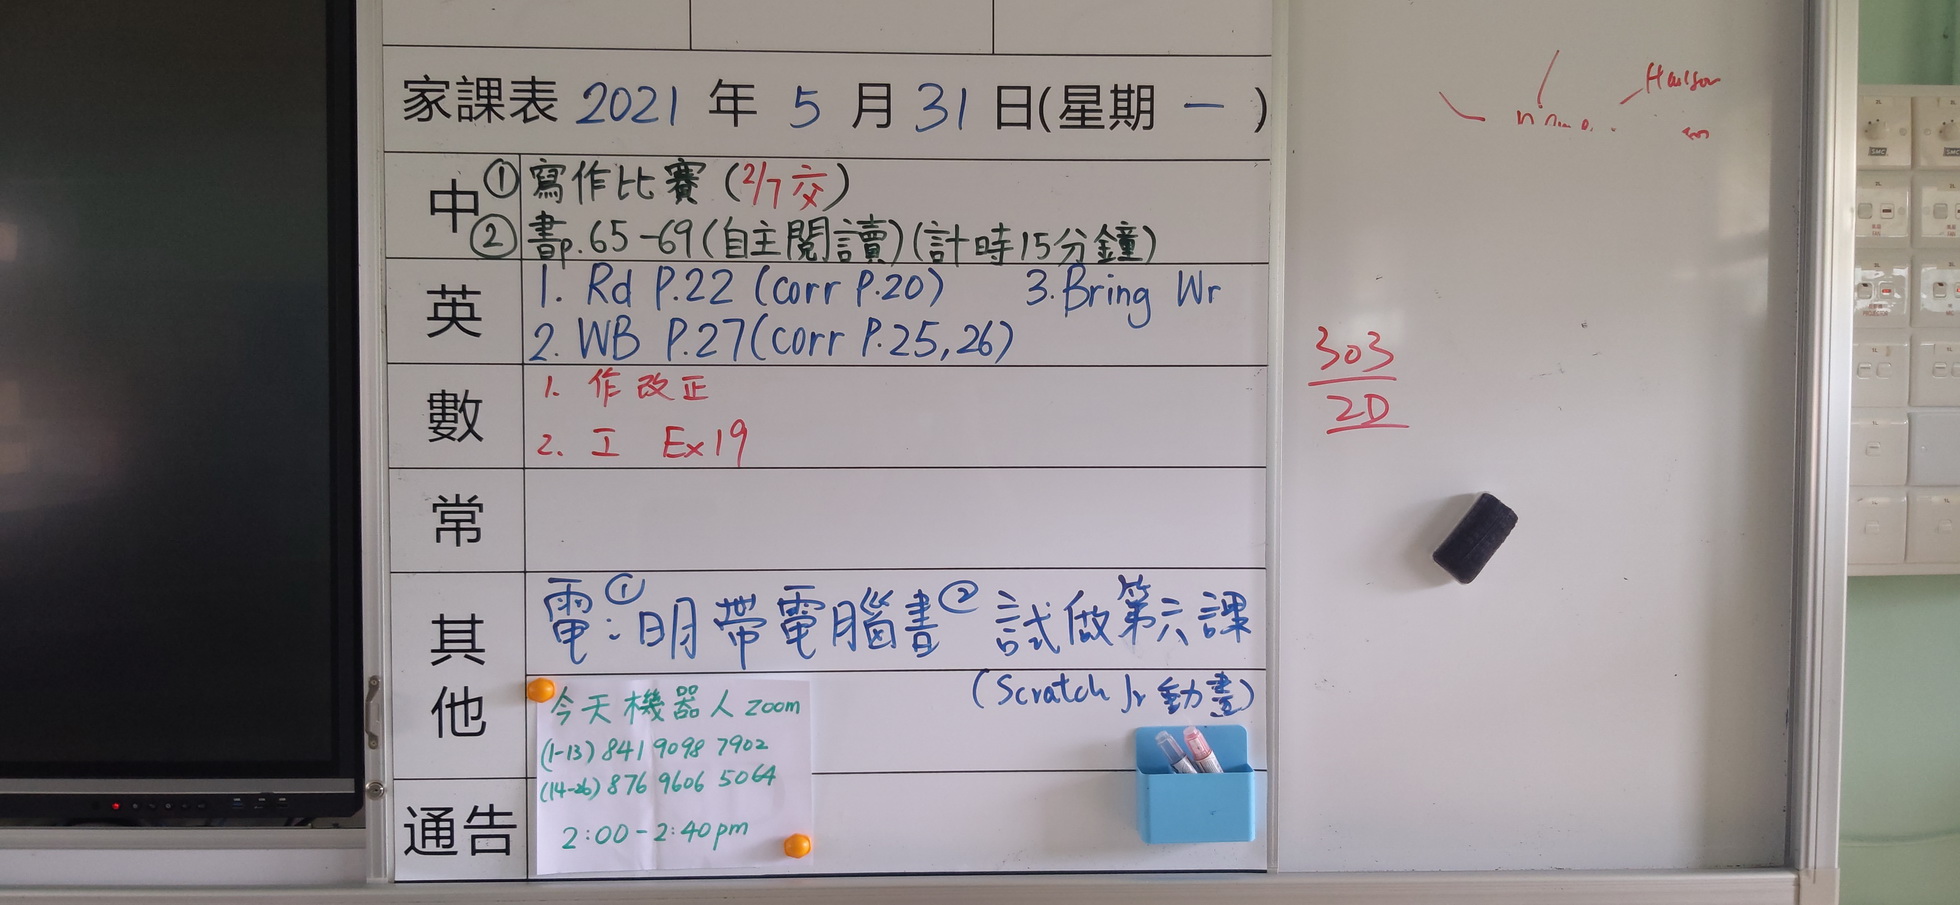 家課表 2021 年 5 月 31 日(星期 一 )
中
① 寫作比賽 (2/7 交)
② 書p.65-69(自主閱讀)(計時15分鐘)
英
1. Rd P.22 (corr P.20) 3.Bring Wr
2. WB P.27(corr P.25,26)
數
1. 作 改正
2. 工 Ex19
常
其他
電:①明帶電腦書② 試做第六課
(Scratch Jr 動畫)
今天機器人 zoom
(1-13) 841 9098 7902
(14-26) 876 9606 5064
2:00-2:40pm
通告
303
2D